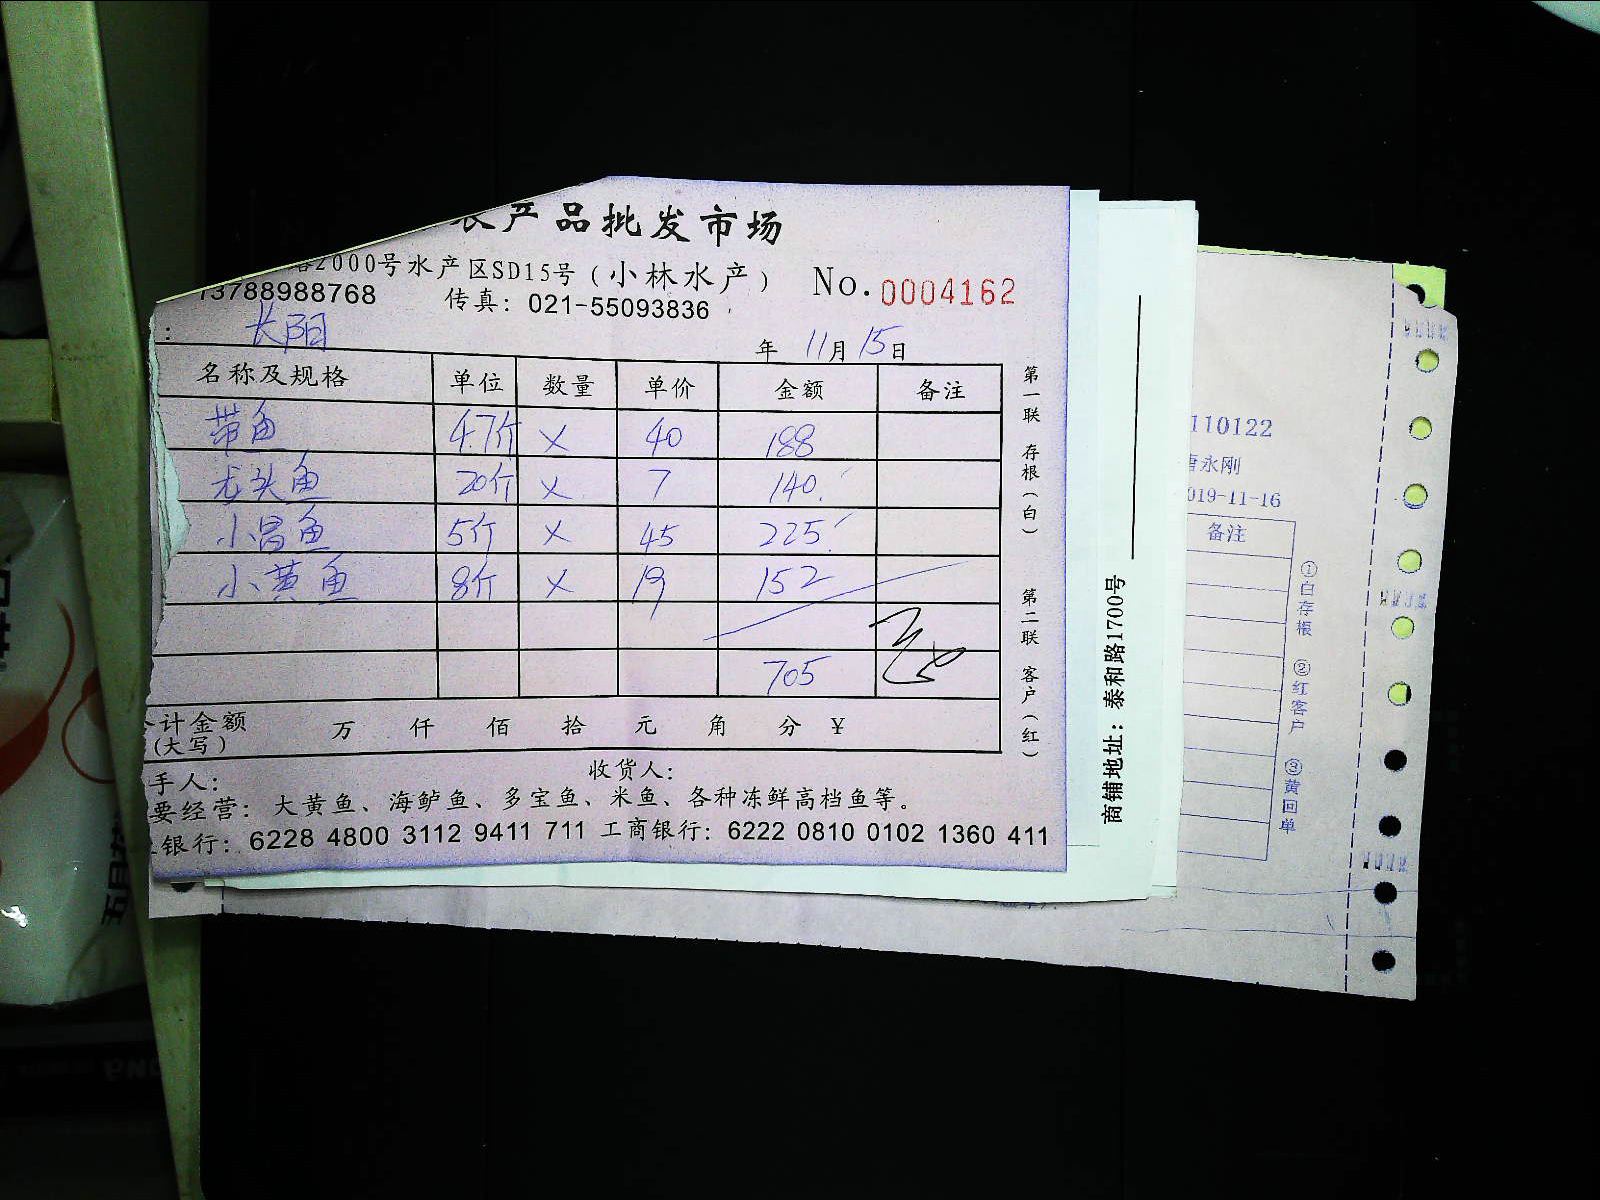 农产品批发市场
路2000号水产区SD15号(小林水产) No.0004162
13788988768 传真: 021-55093836
: 长阳
年 11月 15日
名称及规格 单位 数量 单价 金额 备注
带鱼 4.7斤 × 40 188
龙头鱼 20斤 × 7 140.
小昌鱼 5斤 × 45 225.
小黄鱼 8斤 × 19 152
705
合计金额 万 仟 佰 拾 元 角 分 ¥
(大写)
手人: 收货人:
要经营: 大黄鱼、海鲈鱼、多宝鱼、米鱼、各种冻鲜高档鱼等。
银行: 6228 4800 3112 9411 711 工商银行: 6222 0810 0102 1360 411
第一联 存根(白)
第二联 客户(红)
商铺地址: 泰和路1700号
110122
唐永刚
019-11-16
备注
①白存根 ②红客户 ③黄回单